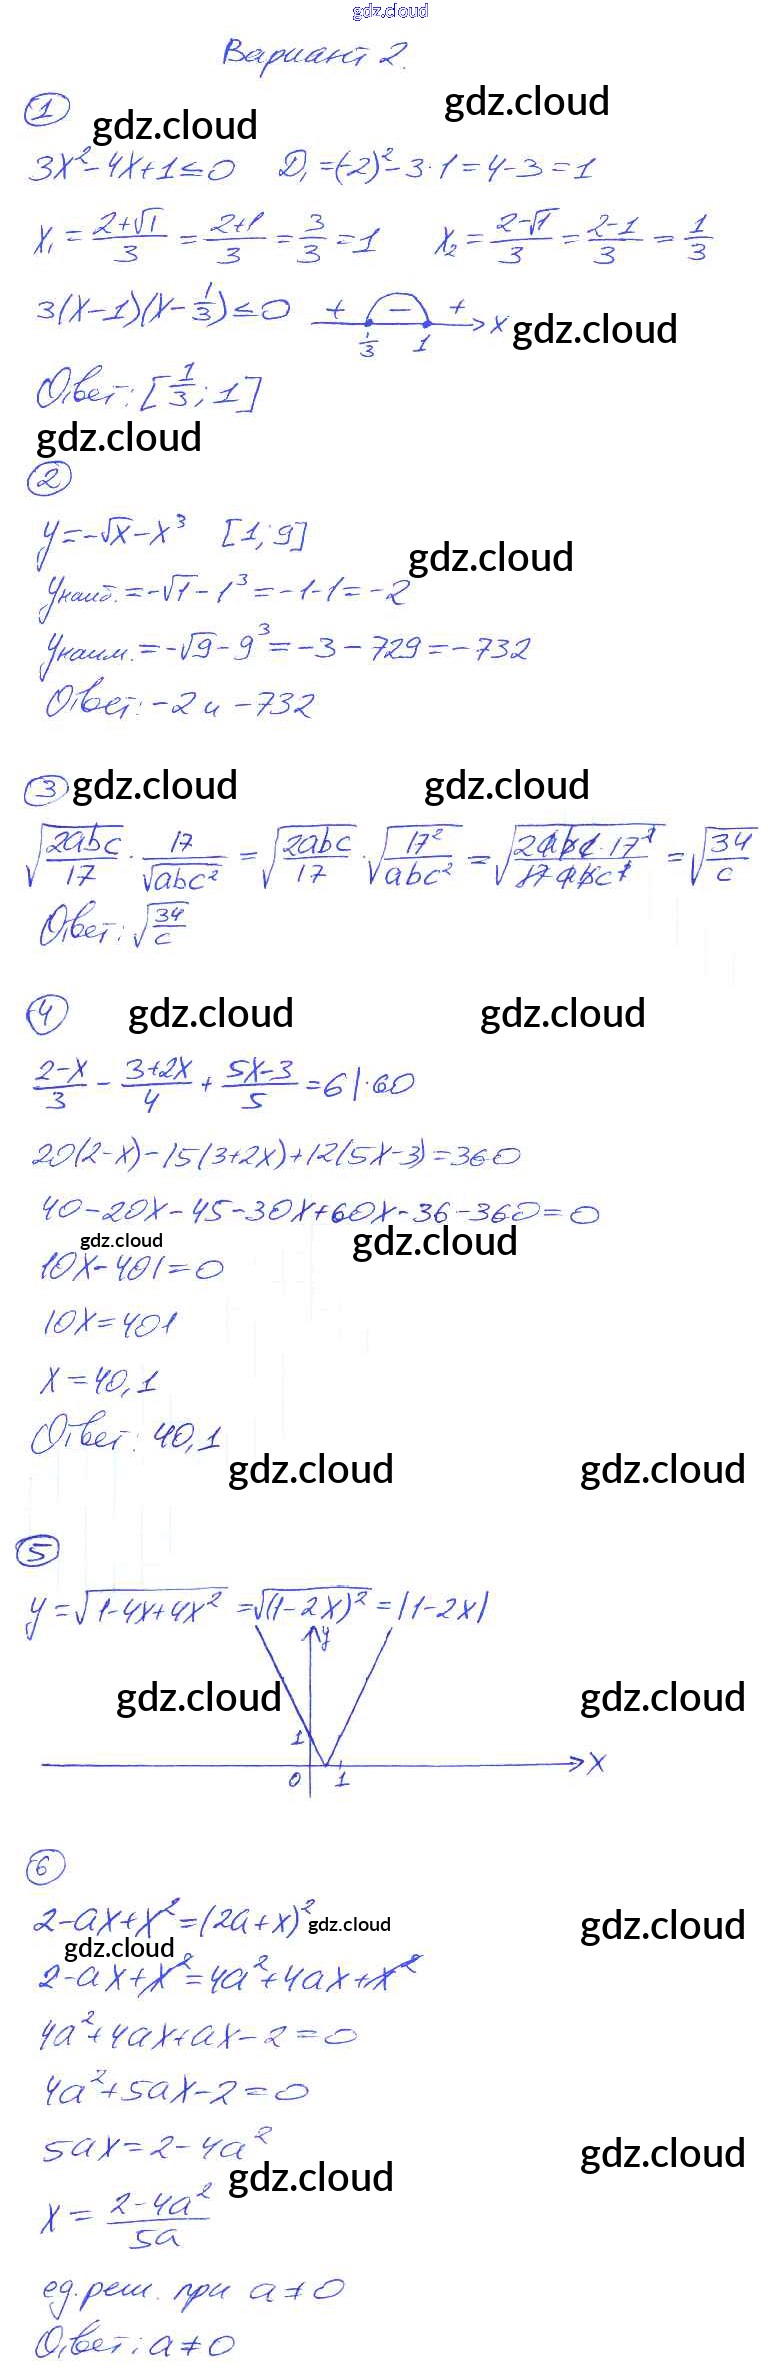 gdz.cloud
Вариант 2.
1
gdz.cloud gdz.cloud
3x²-4x+1≤0 D₁=(-2)²-3·1=4-3=1
x₁=(2+√1)/3=(2+1)/3=3/3=1 x₂=(2-√1)/3=(2-1)/3=1/3
3(x-1)(x-1/3)≤0 + - + x gdz.cloud
1/3 1
Ответ: [1/3; 1]
gdz.cloud
2
y=-√x-x³ [1; 9]
gdz.cloud
yнаиб.=-√1-1³=-1-1=-2
yнаим.=-√9-9³=-3-729=-732
Ответ: -2 и -732
3 gdz.cloud gdz.cloud
√(2abc/17)·17/√(abc²)=√(2abc/17)·√(17²/(abc²))=√((2abc·17²)/(17abc²))=√(34/c)
Ответ: √(34/c)
4 gdz.cloud gdz.cloud
(2-x)/3-(3+2x)/4+(5x-3)/5=6|·60
20(2-x)-15(3+2x)+12(5x-3)=360
40-20x-45-30x+60x-36-360=0
gdz.cloud gdz.cloud
10x-401=0
10x=401
x=40,1
Ответ: 40,1
gdz.cloud gdz.cloud
5
y=√(1-4x+4x²)=√((1-2x)²)=|1-2x|
y
gdz.cloud gdz.cloud
1
x
0 1
6
2-ax+x²=(2a+x)² gdz.cloud gdz.cloud
gdz.cloud
2-ax+x²=4a²+4ax+x²
4a²+4ax+ax-2=0
4a²+5ax-2=0
5ax=2-4a²
gdz.cloud gdz.cloud
x=(2-4a²)/5a
ед. реш. при a≠0
Ответ: a≠0